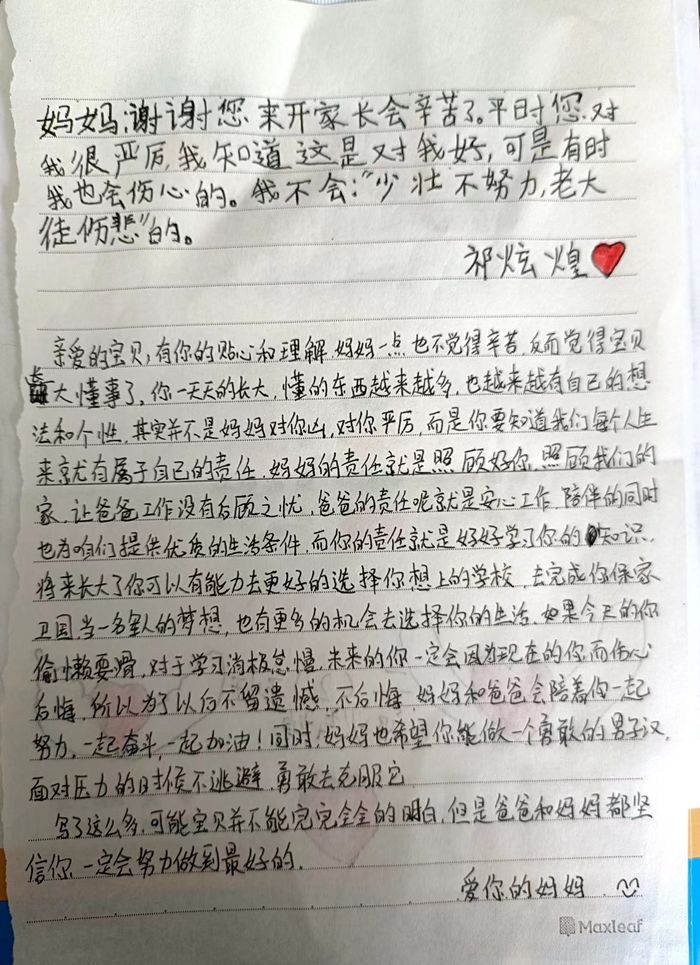 妈妈:谢谢您来开家长会辛苦了。平日时您对
我很严厉,我知道这是对我好,可是有时
我也会伤心的。我不会:“少壮不努力,老大
徒伤悲”的。
祁炫煌
亲爱的宝贝,有你的贴心和理解,妈妈一点也不觉得辛苦,反而觉得宝贝
长大懂事了,你一天天的长大,懂的东西越来越多,也越来越有自己的想
法和个性,其实并不是妈妈对你凶,对你严厉,而是你要知道我们每个人生
来就有属于自己的责任,妈妈的责任就是照顾好你,照顾我们的
家,让爸爸工作没有后顾之忧,爸爸的责任呢就是安心工作,陪伴的同时
也为咱们提供优质的生活条件,而你的责任就是好好学习你的知识,
将来长大了你可以有能力去更好的选择你想上的学校,去完成你保家
卫国,当一名军人的梦想,也有更多的机会去选择你的生活,如果今天的你
偷懒耍滑,对于学习消极怠慢,未来的你一定会因为现在的你而伤心
后悔,所以为了以后不留遗憾,不后悔,妈妈和爸爸会陪着你一起
努力,一起奋斗,一起加油!同时,妈妈也希望你能做一个勇敢的男子汉,
面对压力的时候不逃避,勇敢去克服它
写了这么多,可能宝贝并不能完完全全的明白,但是爸爸和妈妈都坚
信你,一定会努力做到最好的.
爱你的妈妈
Maxleaf